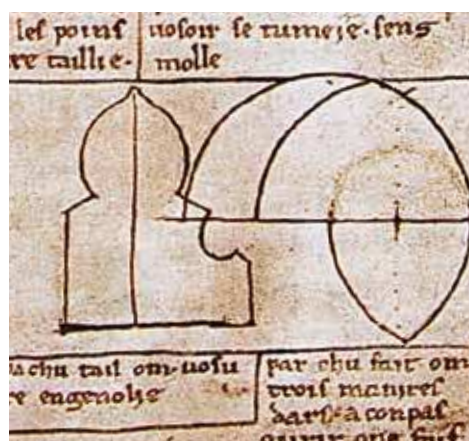 les poins
re taillie.
uosoir sens
molle
chu tail om uosu
re engenolie
par chu fait om
trois manires
dars a conpas